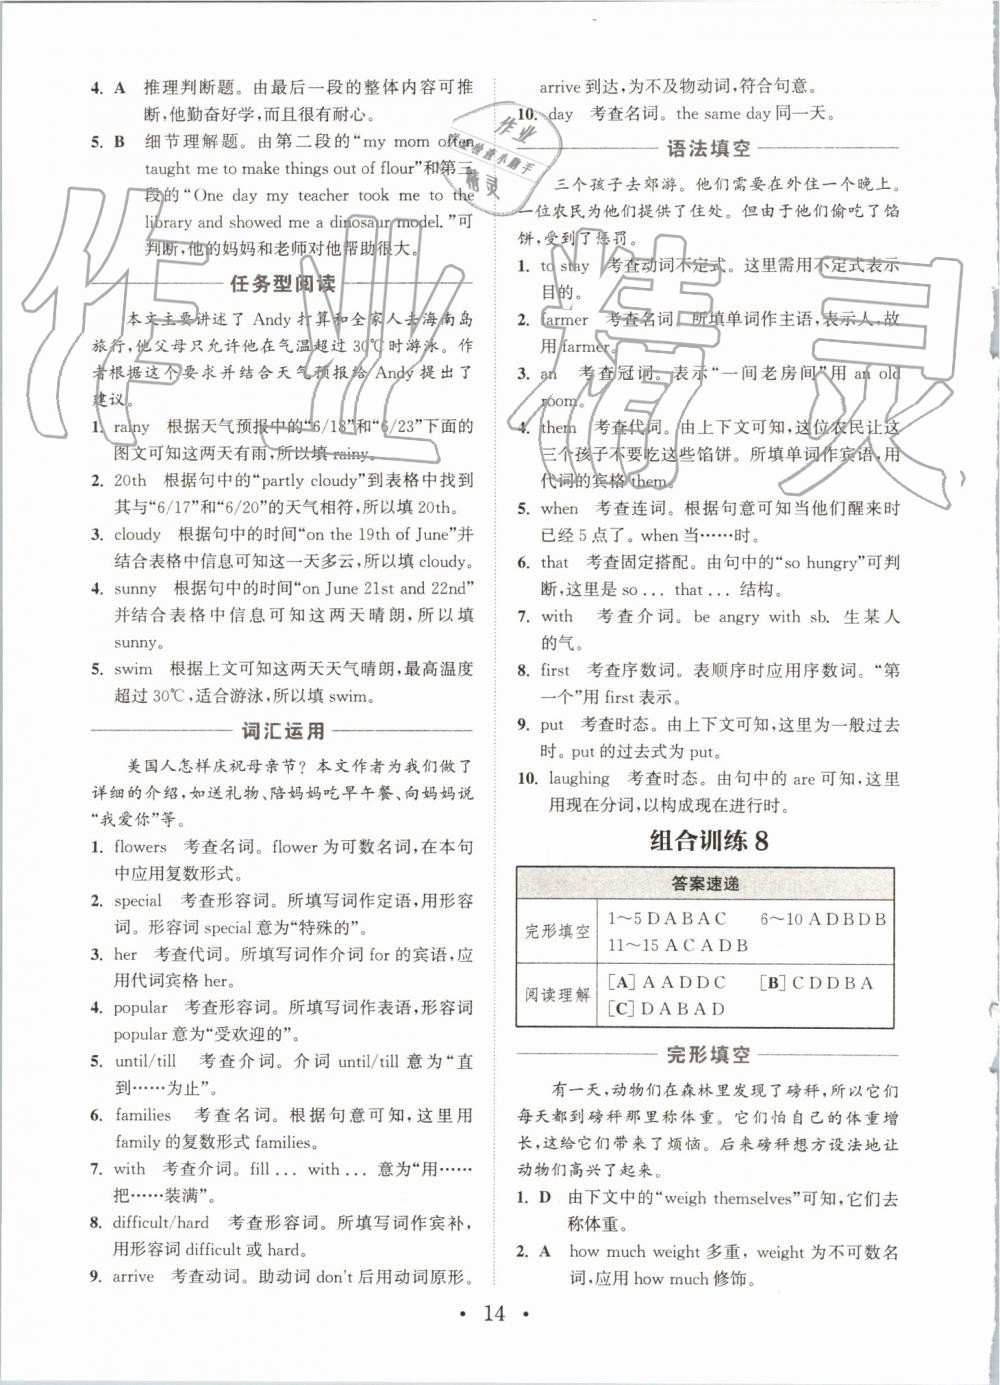 4. A 推理判断题。由最后一段的整体内容可推
断,他勤奋好学,而且很有耐心。
5. B 细节理解题。由第二段的“my mom often
taught me to make things out of flour”和第三
段的“One day my teacher took me to the
library and showed me a dinosaur model.”可
判断,他的妈妈和老师对他帮助很大。
任务型阅读
本文主要讲述了 Andy 打算和全家人去海南岛
旅行,他父母只允许他在气温超过 30℃时游泳。作
者根据这个要求并结合天气预报给 Andy 提出了
建议。
1. rainy 根据天气预报中的“6/18”和“6/23”下面的
图文可知这两天有雨,所以填 rainy。
2. 20th 根据句中的“partly cloudy”到表格中找到
其与“6/17”和“6/20”的天气相符,所以填 20th。
3. cloudy 根据句中的时间“on the 19th of June”并
结合表格中信息可知这一天多云,所以填 cloudy。
4. sunny 根据句中的时间“on June 21st and 22nd”
并结合表格中信息可知这两天晴朗,所以填
sunny。
5. swim 根据上文可知这两天天气晴朗,最高温度
超过 30℃,适合游泳,所以填 swim。
词汇运用
美国人怎样庆祝母亲节? 本文作者为我们做了
详细的介绍,如送礼物、陪妈妈吃早午餐、向妈妈说
“我爱你”等。
1. flowers 考查名词。flower 为可数名词,在本句
中应用复数形式。
2. special 考查形容词。所填写词作定语,用形容
词。形容词 special 意为“特殊的”。
3. her 考查代词。所填写词作介词 for 的宾语,应
用代词宾格 her。
4. popular 考查形容词。所填写词作表语,形容词
popular 意为“受欢迎的”。
5. until/till 考查介词。介词 until/till 意为“直
到……为止”。
6. families 考查名词。根据句意可知,这里用
family 的复数形式 families。
7. with 考查介词。fill ... with ... 意为“用……
把……装满”。
8. difficult/hard 考查形容词。所填写词作宾补,
用形容词 difficult 或 hard。
9. arrive 考查动词。助动词 don't 后用动词原形。
arrive 到达,为不及物动词,符合句意。
10. day 考查名词。the same day 同一天。
语法填空
三个孩子去郊游。他们需要在外住一个晚上。
一位农民为他们提供了住处。但由于他们偷吃了馅
饼,受到了惩罚。
1. to stay 考查动词不定式。这里需用不定式表示
目的。
2. farmer 考查名词。所填单词作主语,表示人,故
用 farmer。
3. an 考查冠词。表示“一间老房间”用 an old
room。
4. them 考查代词。由上下文可知,这位农民让这
三个孩子不要吃这些馅饼。所填单词作宾语,用
代词的宾格 them。
5. when 考查连词。根据句意可知当他们醒来时
已经 5 点了。when 当……时。
6. that 考查固定搭配。由句中的“so hungry”可判
断,这里是 so ... that ... 结构。
7. with 考查介词。be angry with sb. 生某人
的气。
8. first 考查序数词。表顺序时应用序数词。“第
一个”用 first 表示。
9. put 考查时态。由上下文可知,这里为一般过去
时。put 的过去式为 put。
10. laughing 考查时态。由句中的 are 可知,这里
用现在分词,以构成现在进行时。
组合训练 8
答案速递
完形填空 1～5 D A B A C 6～10 A D B D B
11～15 A C A D B
阅读理解 [A] A A D D C [B] C D D B A
[C] D A B A D
完形填空
有一天,动物们在森林里发现了磅秤,所以它们
每天都到磅秤那里称体重。它们怕自己的体重增
长,这给它们带来了烦恼。后来磅秤想方设法地让
动物们高兴了起来。
1. D 由下文中的“weigh themselves”可知,它们去
称体重。
2. A how much weight 多重, weight 为不可数名
词,应用 how much 修饰。
• 14 •
作业精灵
作业
作业检查小助手
精灵